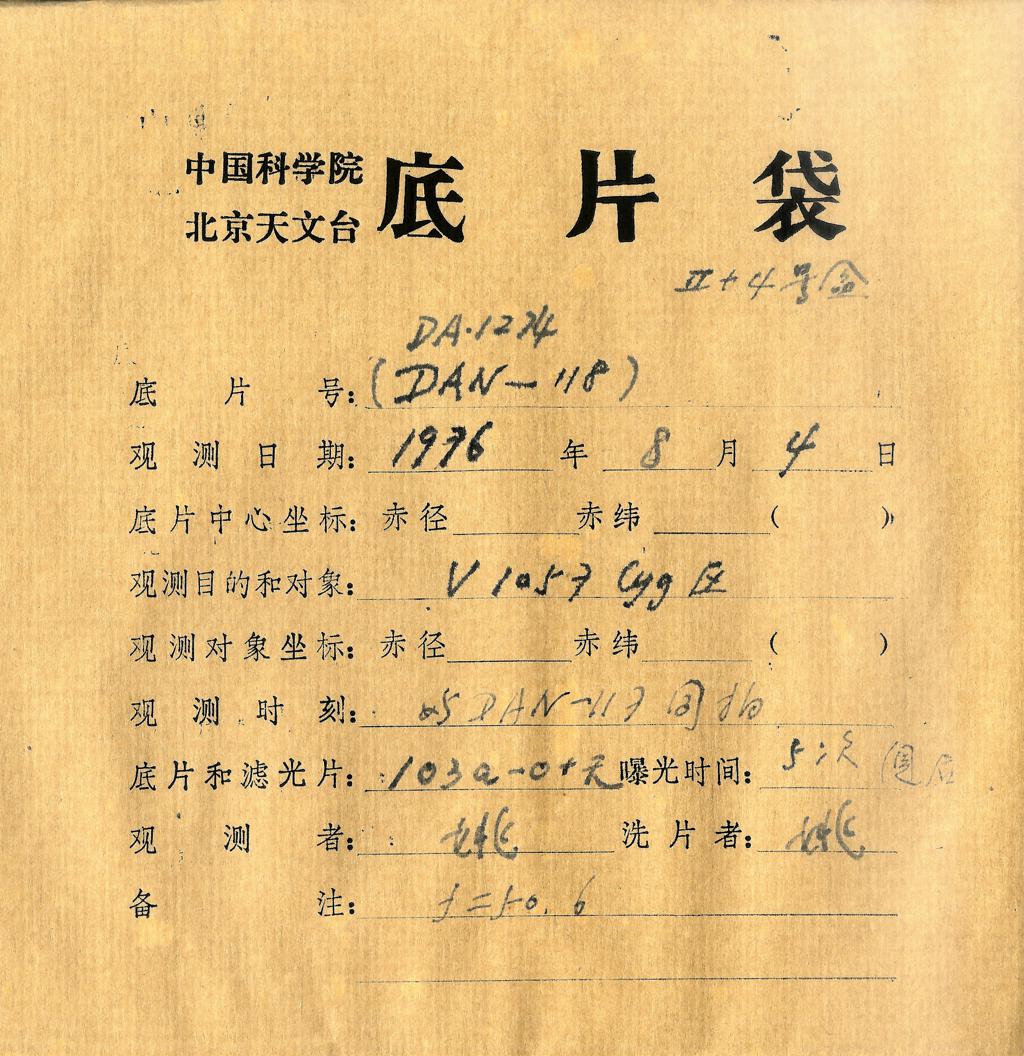 中国科学院
北京天文台 底片袋
II+4号盒
DA·1224
底片号：(DAN-118)
观测日期：1976年8月4日
底片中心坐标：赤径 赤纬 ( )
观测目的和对象：V1057 Cyg 区
观测对象坐标：赤径 赤纬 ( )
观测时刻：与DAN-117同拍
底片和滤光片：103a-O+无 曝光时间：5次
观测者：姚 洗片者：姚
备注：f=50.6